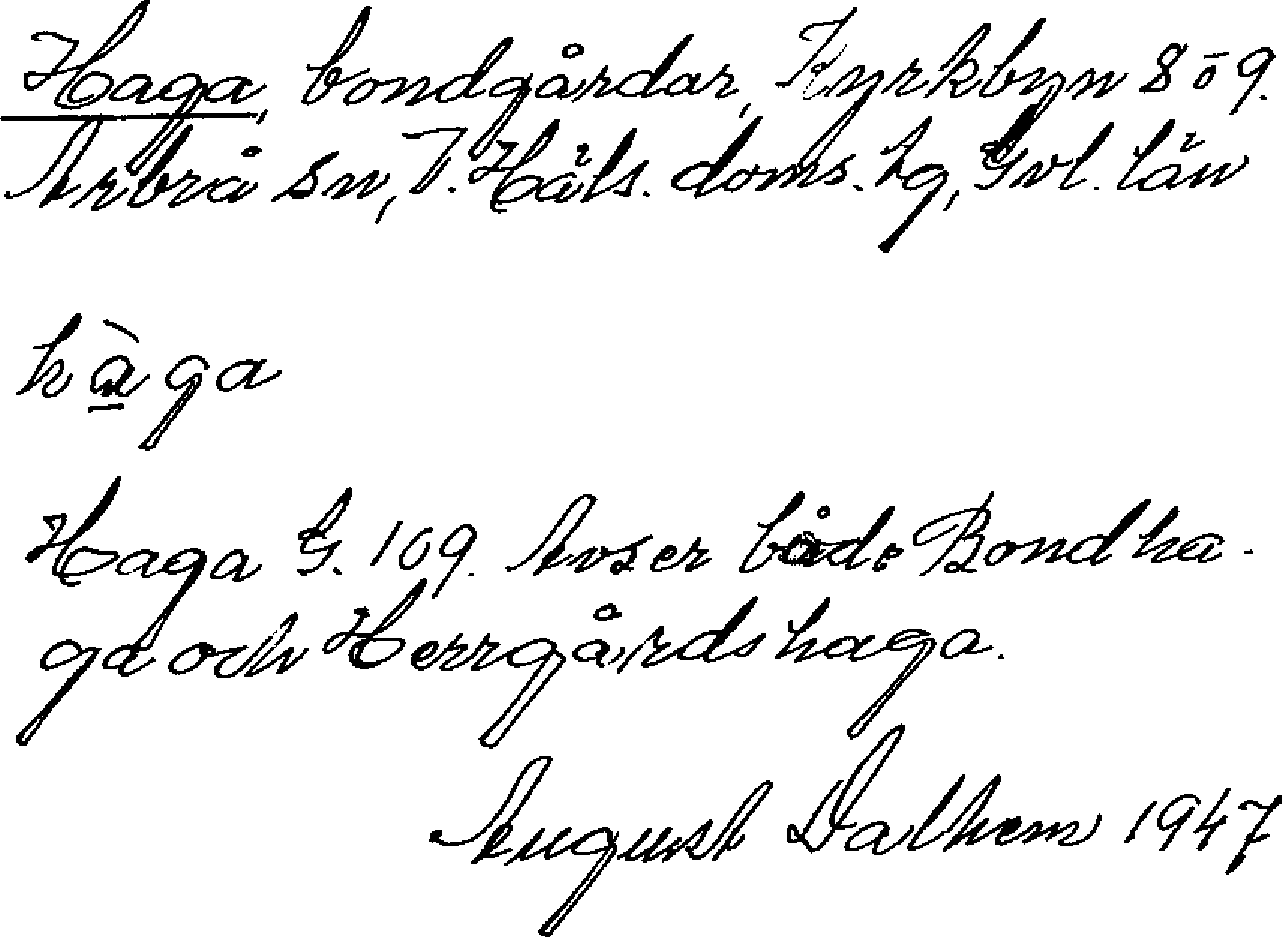 Haga, bondgårdar, Kyrkbyn 8 o 9.
Arbrå sn, V. Häls. doms. lg, Gvl. län
hàga
Haga G. 109. Avser både Bondha-
ga och Herrgårdshaga.
August Dalhem 1947